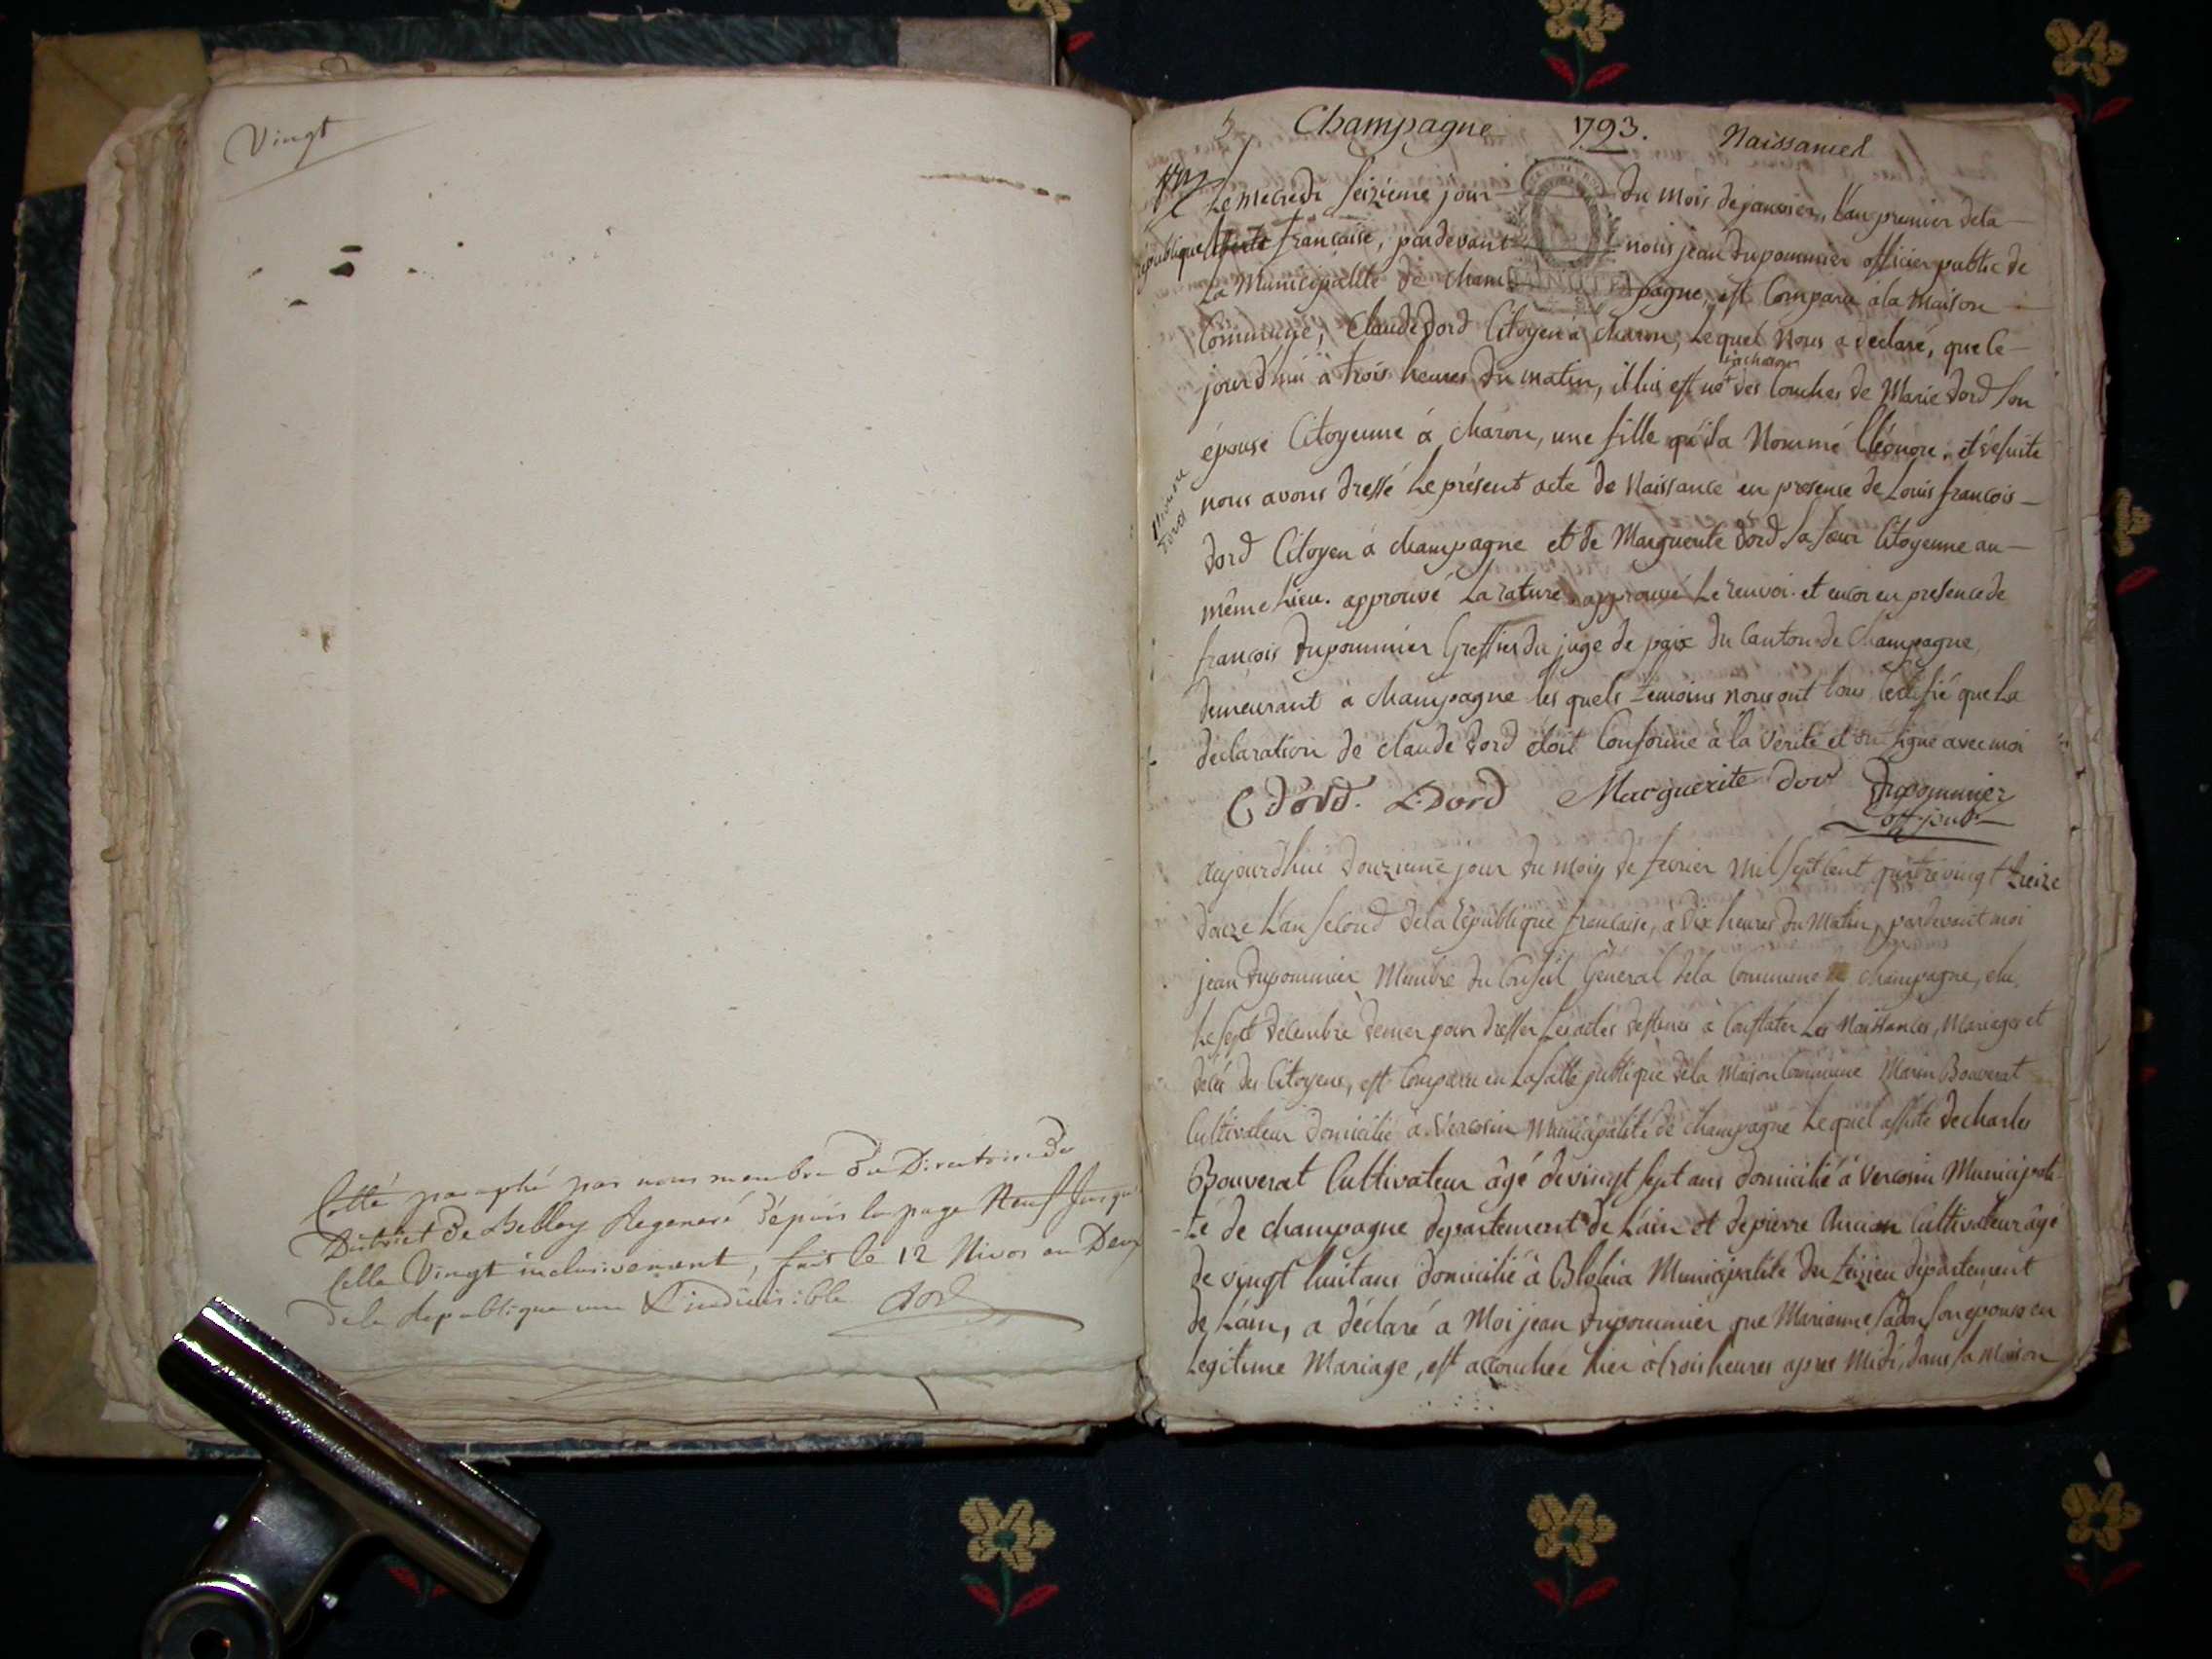 Vingt
Cotté paraphé par nous membre du Directoire du
District de Belley Regeneré dépuis la page Neuf Jusqu'
celle Vingt inclusivement, fait le 12 Nivos an Deux
de la Republique une & indivisible Dord
5 Champagne 1793. Naissances
Le mecredi seizieme jour du mois de janvier, l'an premier de la
république française, pardevant nous jean Dupommier officier public de
La Municipalité de Champagne, est Comparu à la Maison
Commune, Claude Dord Citoyen à Charon, Lequel Nous a déclaré, que Ce
à charon
jourd'hui à trois heures du matin, il lui est né des Couches de Marie Dord son
épouse Citoyenne à Charon, une fille qu'il a Nommé Eléonore. et de suite
Eléonore
Dord
nous avons dressé Le présent acte de Naissance en presence de Louis françois
Dord Citoyen à champagne et de Marguerite Dord sa sœur Citoyenne au
même Lieu. approuvé La rature, approuvé Le renvoi. et encor en presence de
françois Dupommier Greffier du juge de paix du Canton de Champagne,
demeurant à Champagne les quels temoins nous ont tous Certifié que La
déclaration de claude Dord étoit Conforme à la vérité et ont signé avec moi
C Dord. L. Dord Marguerite Dord Dupommier
off. pub.
aujourd'hui Douzieme jour du mois de fevrier mil sept cent quatre vingt treize
L'an second de la république française, à dix heures du Matin, pardevant moi
jean Dupommier Membre du Conseil General de la Commune de Champagne, élu
Le sept décembre dernier pour dresser Les actes destinés à Constater Les Naissances, Mariages et
décès des Citoyens, est Comparu en La salle publique de la Maison Commune Marin Bouverat
Cultivateur domicilié à Vercosin Municipalité de Champagne Lequel assisté de charles
Bouverat Cultivateur âgé de vingt sept ans domicilié à Vercosin Municipali-
-té de Champagne departement de L'ain et de pierre Ancian Cultivateur âgé
de vingt huit ans domicilié à Municipalité du departement
de L'ain, a déclaré à Moi jean Dupommier que Marianne son épouse en
Legitime Mariage, est accouchée hier à trois heures après Midi, dans sa Maison